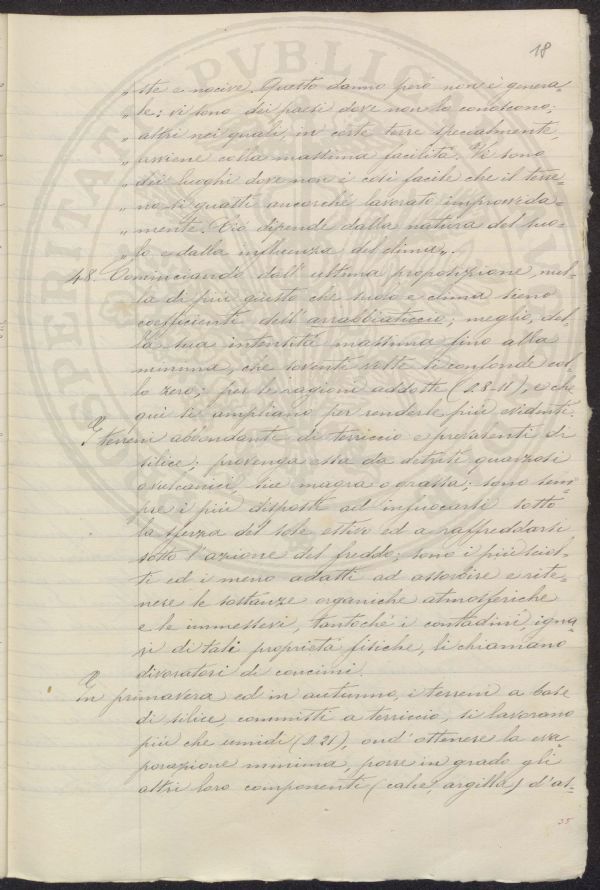 18
„ ste e nocive. Questo danno però non è genera-
„ le; vi sono dei paesi dove non lo conoscono;
„ altri nei quali, in certe terre specialmente,
„ avviene colla massima facilità. Vi sono
„ dei luoghi dove non è così facile che il terre-
„ no si guasti ancorché lavorato improvvida-
„ mente. Ciò dipende dalla natura del suo-
„ lo e dalla influenza del clima„.
48. Cominciando dall'ultima proposizione, nul-
la di più giusto che suolo e clima sieno
coefficienti dell'arrabbiaticcio; meglio, del-
la sua intensità massima fino alla
minima, che sovente volte si confonde col-
lo zero; per le ragioni addotte (§ 8-11), e che
qui si ampliano per renderle più evidenti.
I terreni abbondanti di terriccio e prevalenti di
silice; provenga essa da detriti quarzosi
o vulcanici, sie magra o grassa; sono sem-
pre i più disposti ad infuocarsi sotto
la sferza del sole estivo ed a raffreddarsi
sotto l'azione del freddo; sono i più sciol-
ti ed i meno adatti ad assorbire e rite-
nere le sostanze organiche atmosferiche
e le immessevi, tantochè i contadini, igna-
ri di tali proprietà fisiche, li chiamano
divoratori di concimi.
In primavera ed in autunno, i terreni a base
di silice, commisti a terriccio, si lavorano
più che umidi (§ 21), ond'ottenere la eva-
porazione minima, porre in grado gli
altri loro componenti (calce, argilla) d'as-
35